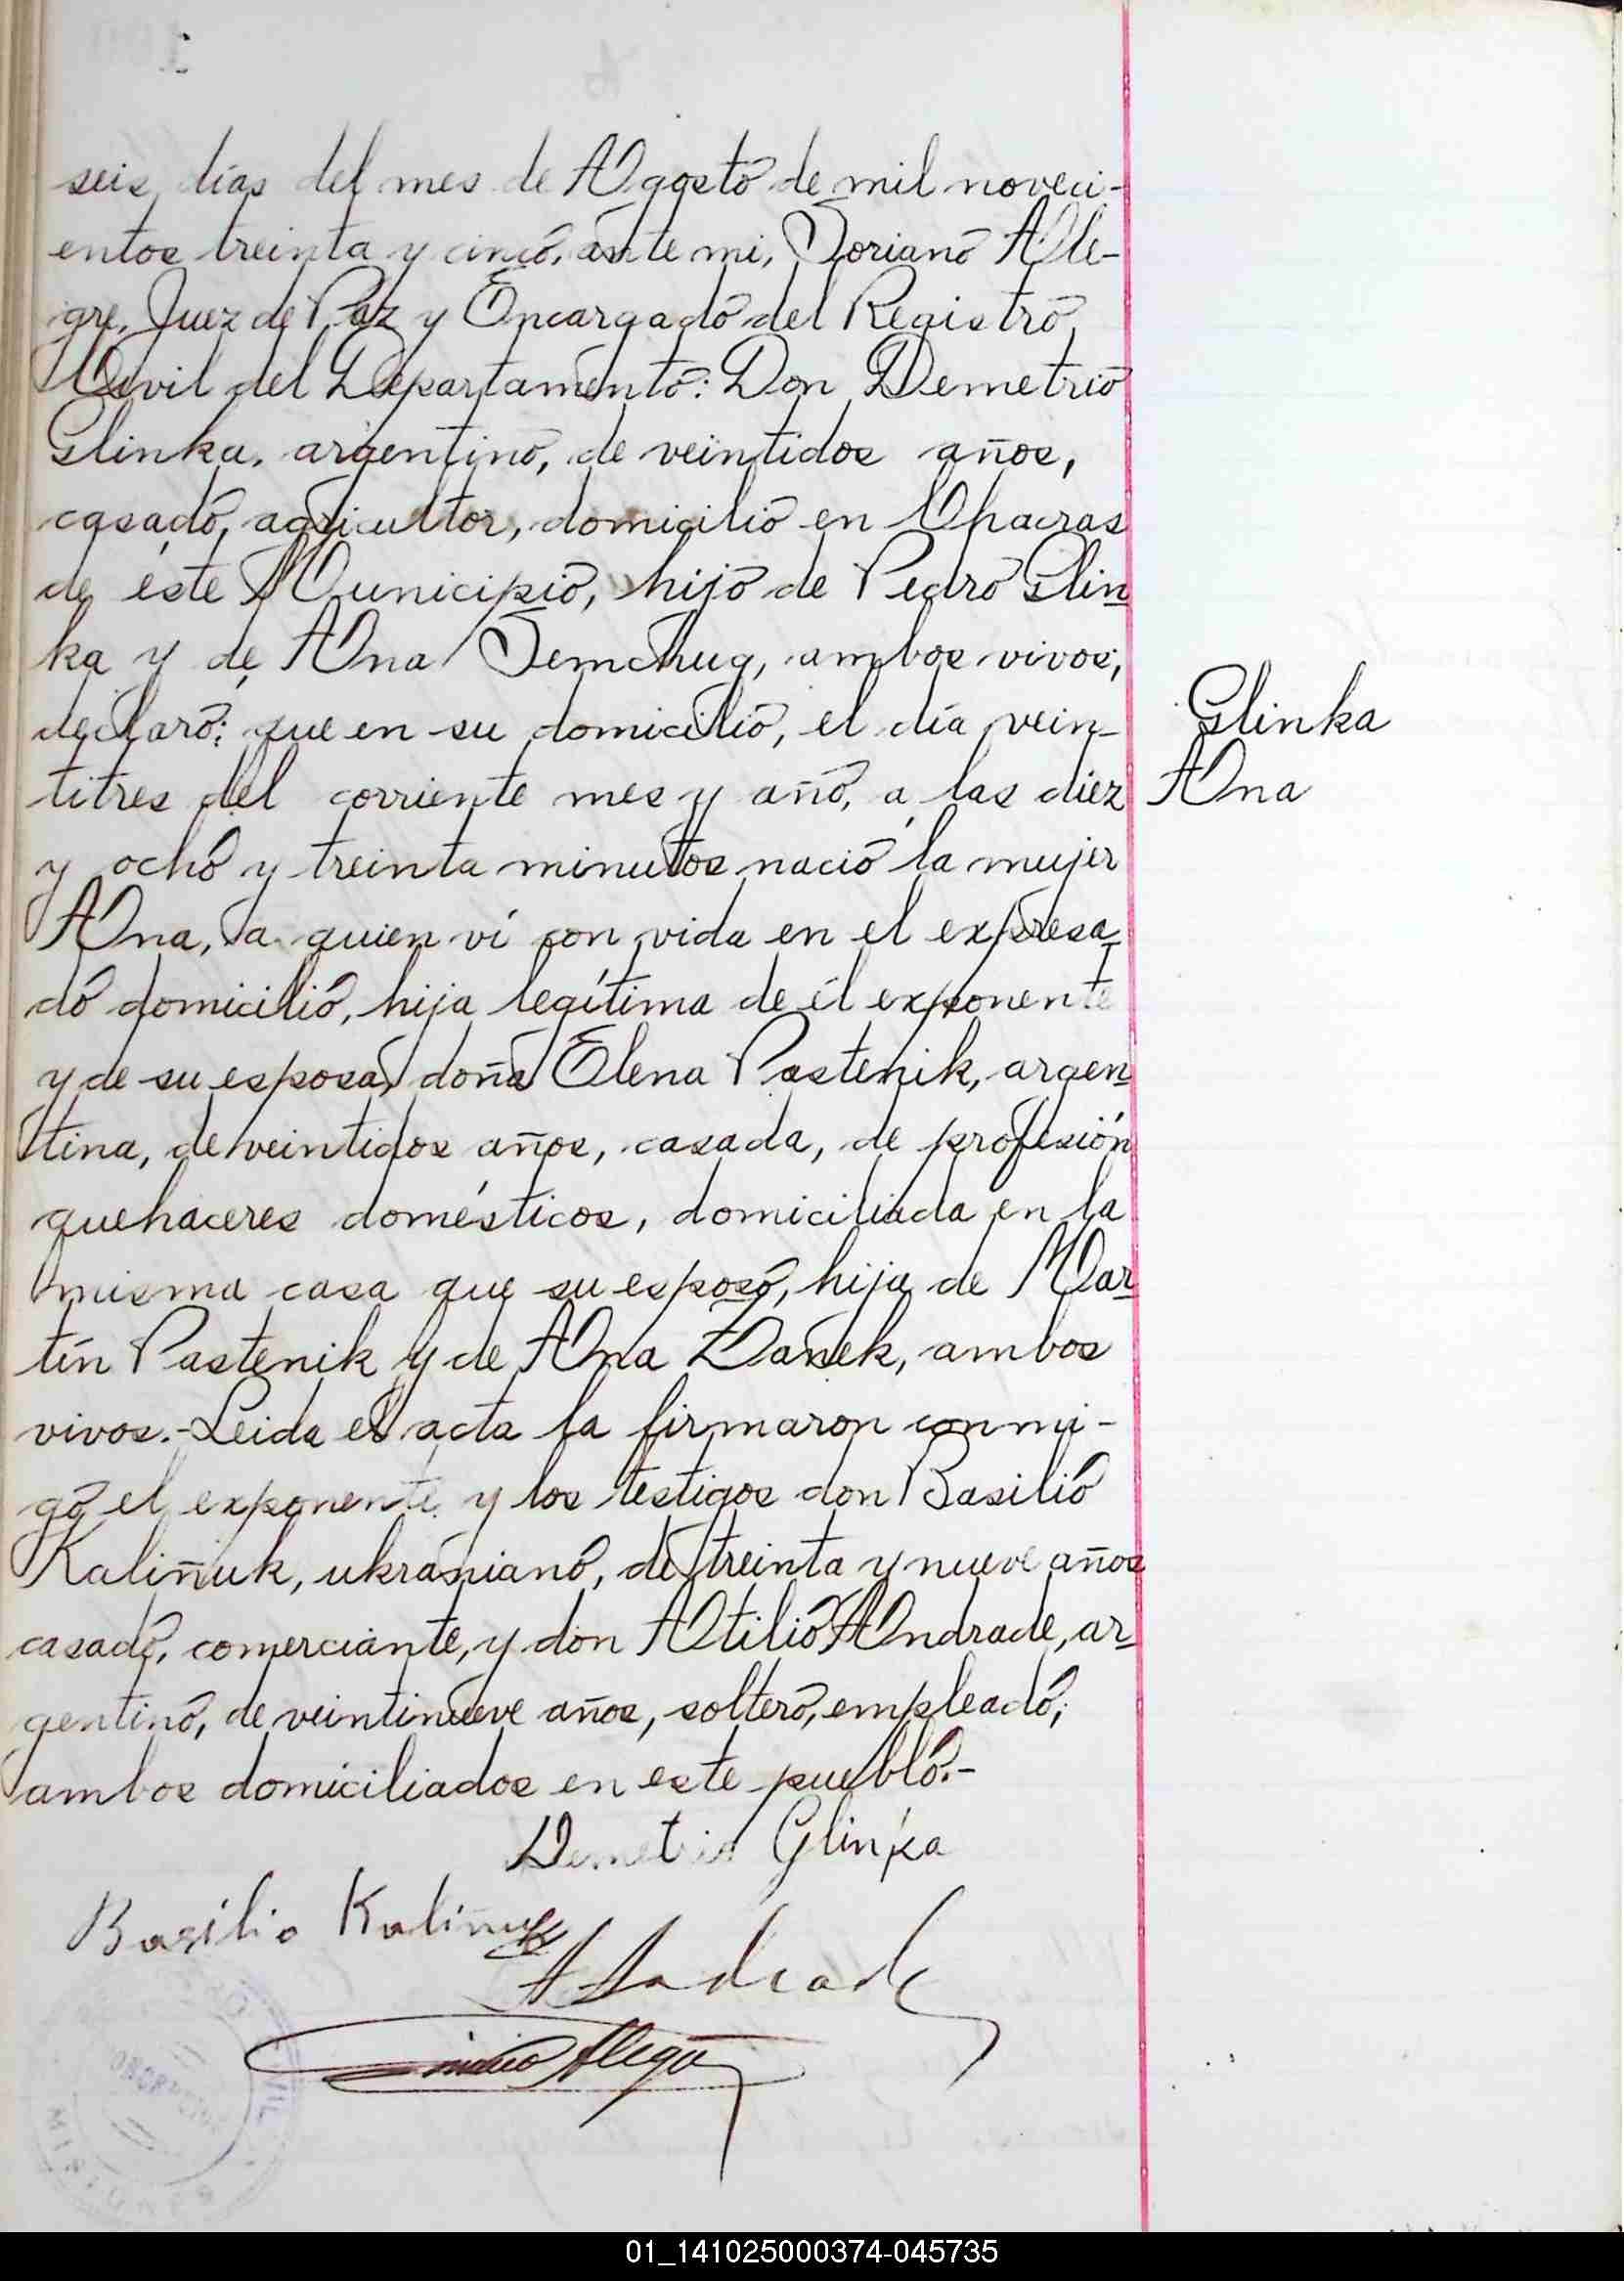 seis días del mes de Agosto de mil noveci-
entos treinta y cinco, ante mi, Soriano Ale-
gre, Juez de Paz y Encargado del Registro
Civil del Departamento: Don Demetrio
Glinka, argentino, de veintidos años,
casado, agricultor, domicilio en Chacras
de éste Municipio, hijo de Pedro Glin
ka y de Ana Semchug, ambos vivos;
declaró: que en su domicilio, el día vein-
titres del corriente mes y año, a las diez
y ocho y treinta minutos nació la mujer
Ana, a quien ví con vida en el expresa
do domicilio, hija legítima de él exponente
y de su esposa, doña Elena Pastenik, argen
tina, de veintidos años, casada, de profesión
quehaceres domésticos, domiciliada en la
misma casa que su esposo, hija de Mar
tín Pastenik y de Ana Zañek, ambos
vivos.- Leida el acta la firmaron conmi-
go el exponente y los testigos don Basilio
Kaliñuk, ukraniano, de treinta y nueve años
casado, comerciante, y don Atilio Andrade, ar
gentino, de veintinueve años, soltero, empleado;
ambos domiciliados en este pueblo.-
Glinka
Ana
Demetrio Glinka
Basilio Kaliñuk
A Andrade
Alegre
MISIONES
01_141025000374-045735